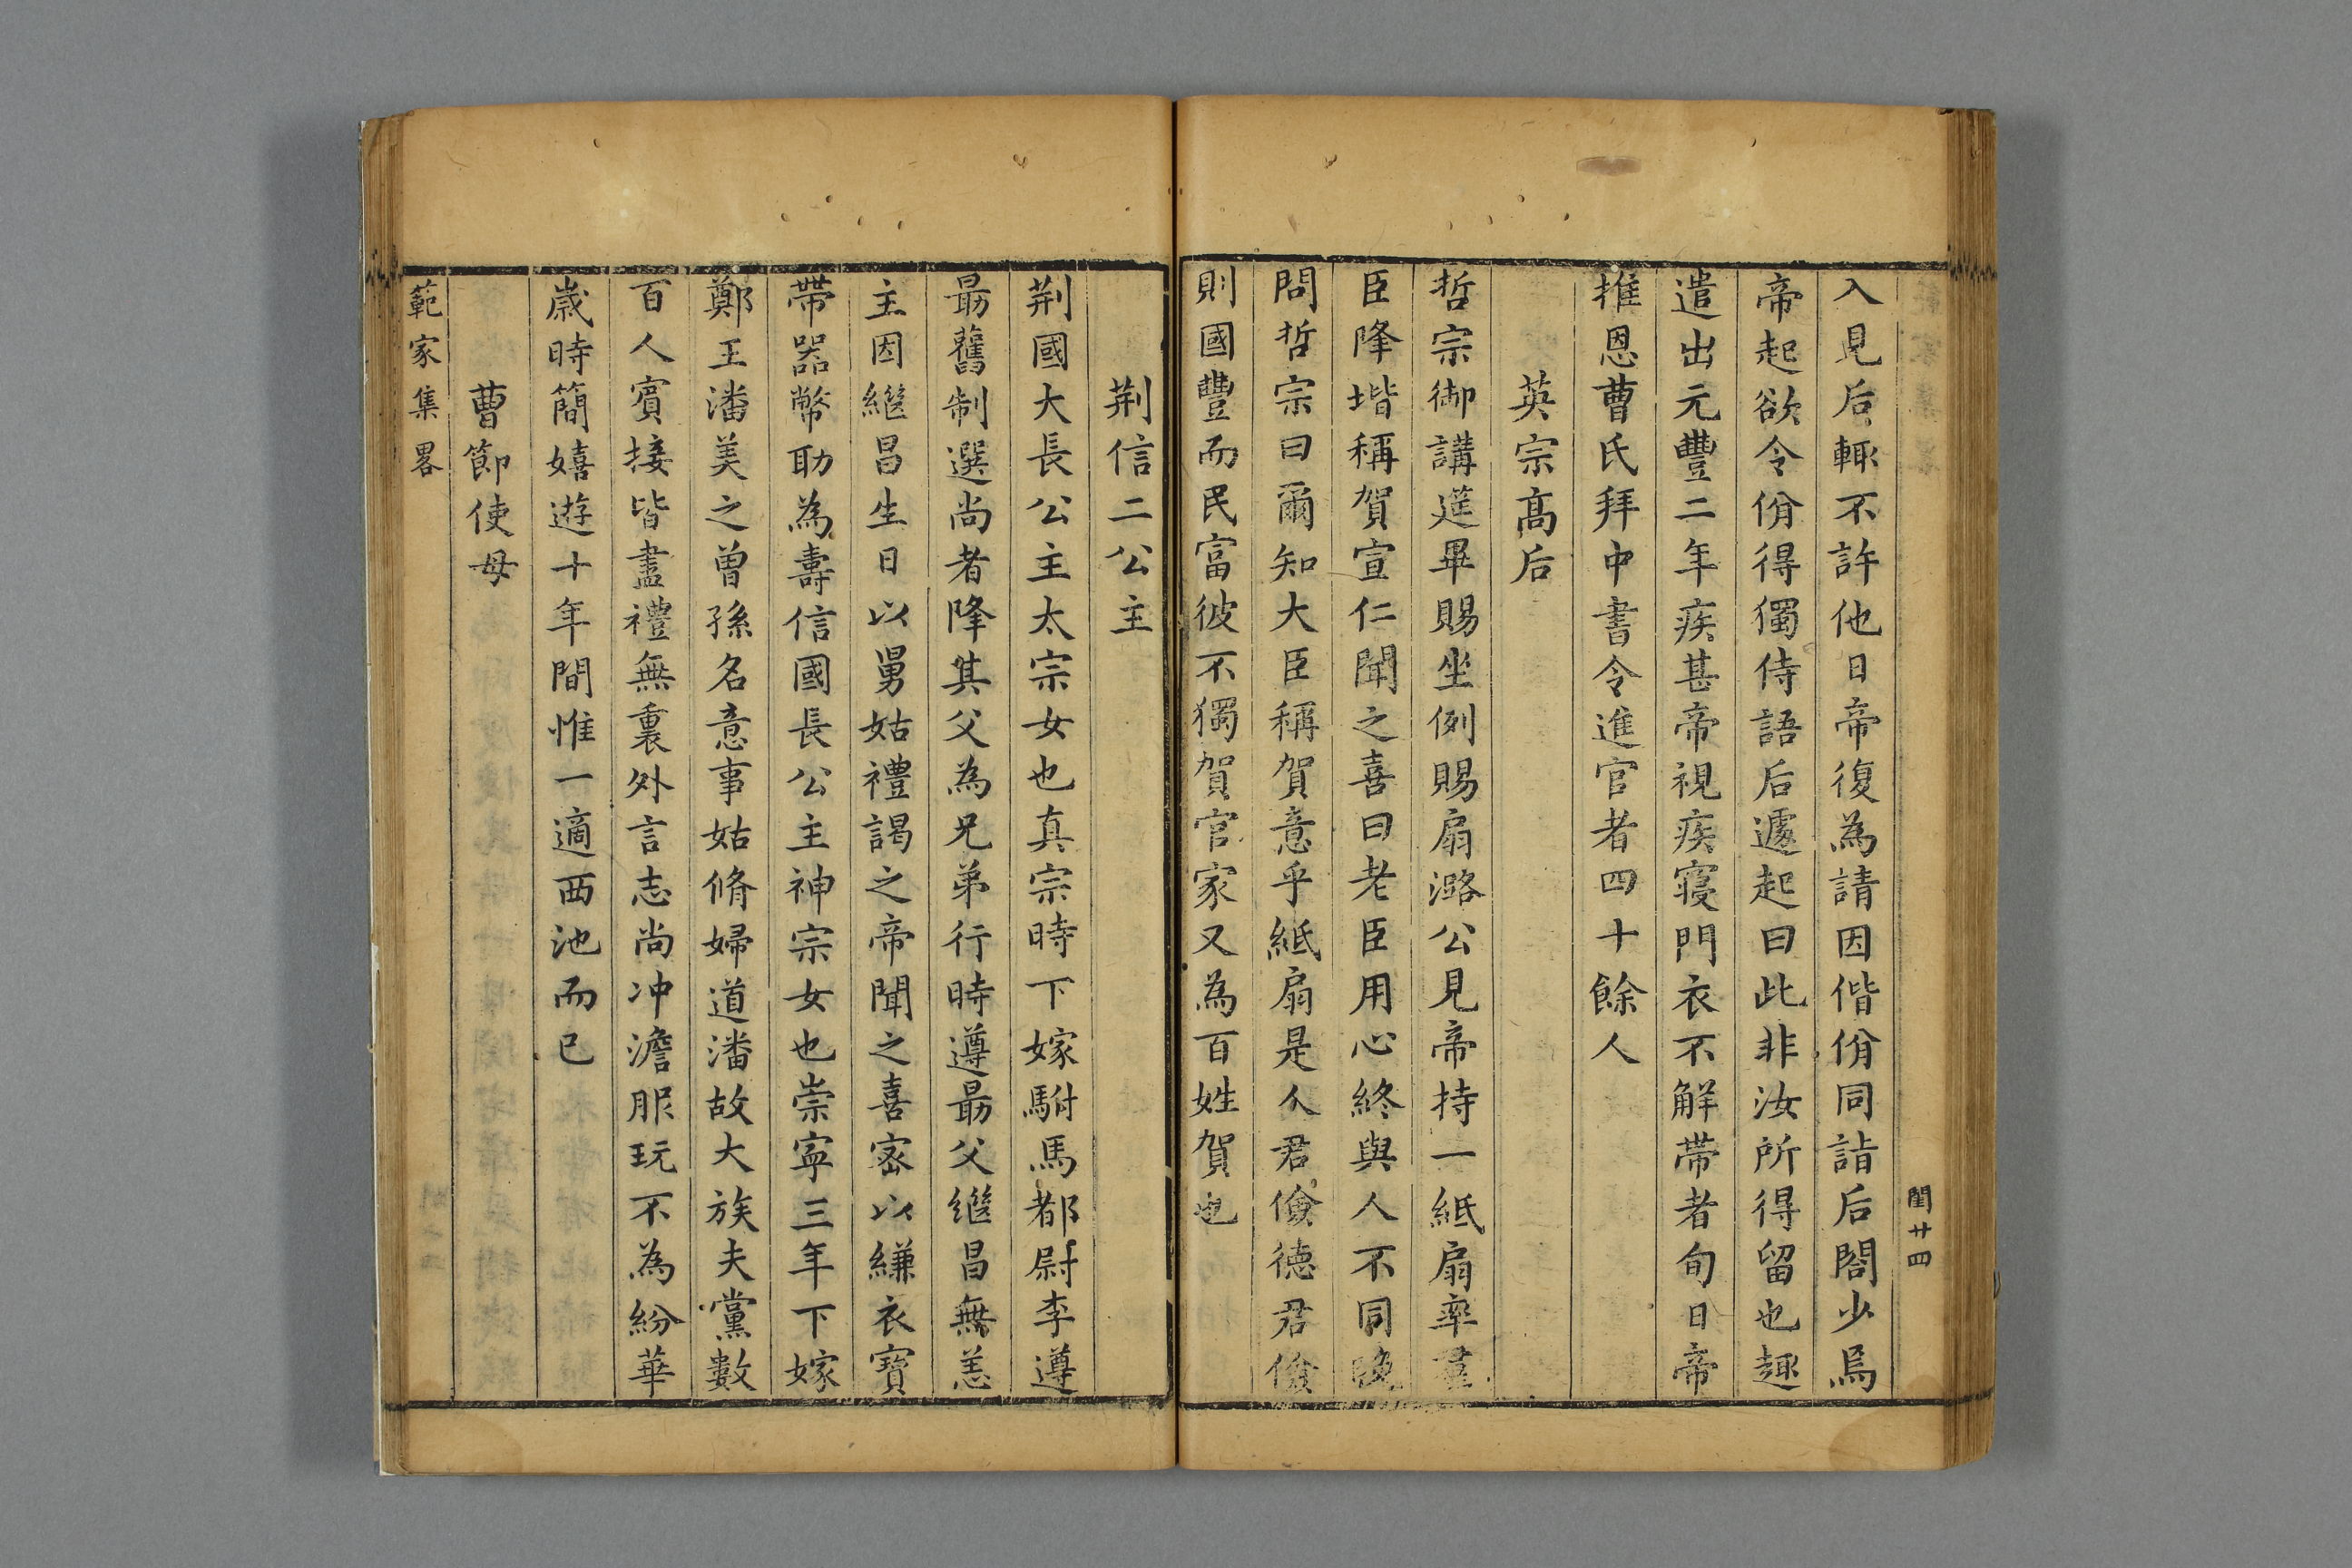 閨廿四
入見后輙不許他日帝復為請因偕佾同詣后閤少焉
帝起欲令佾得獨侍語后遽起曰此非汝所得留也趣
遣出元豐二年疾甚帝視疾寢門衣不解帶者旬日帝
推恩曹氏拜中書令進官者四十餘人
英宗高后
哲宗御講筵畢賜坐例賜扇潞公見帝持一紙扇率羣
臣降堦稱賀宣仁聞之喜曰老臣用心終與人不同晚
問哲宗曰爾知大臣稱賀意乎紙扇是人君儉德君儉
則國豐而民富彼不獨賀官家又為百姓賀也
荆信二公主
荆國大長公主太宗女也真宗時下嫁駙馬都尉李遵
最舊制選尚者降其父為兄弟行時遵最父繼昌無恙
主因繼昌生日以舅姑禮謁之帝聞之喜密以縑衣寶
帶器幣助為壽信國長公主神宗女也崇寧三年下嫁
鄭王潘美之曾孫名意事姑脩婦道潘故大族夫黨數
百人賓接皆盡禮無裏外言志尚冲澹服玩不為紛華
歲時簡嬉遊十年間惟一適西池而已
曹節使母
範家集畧